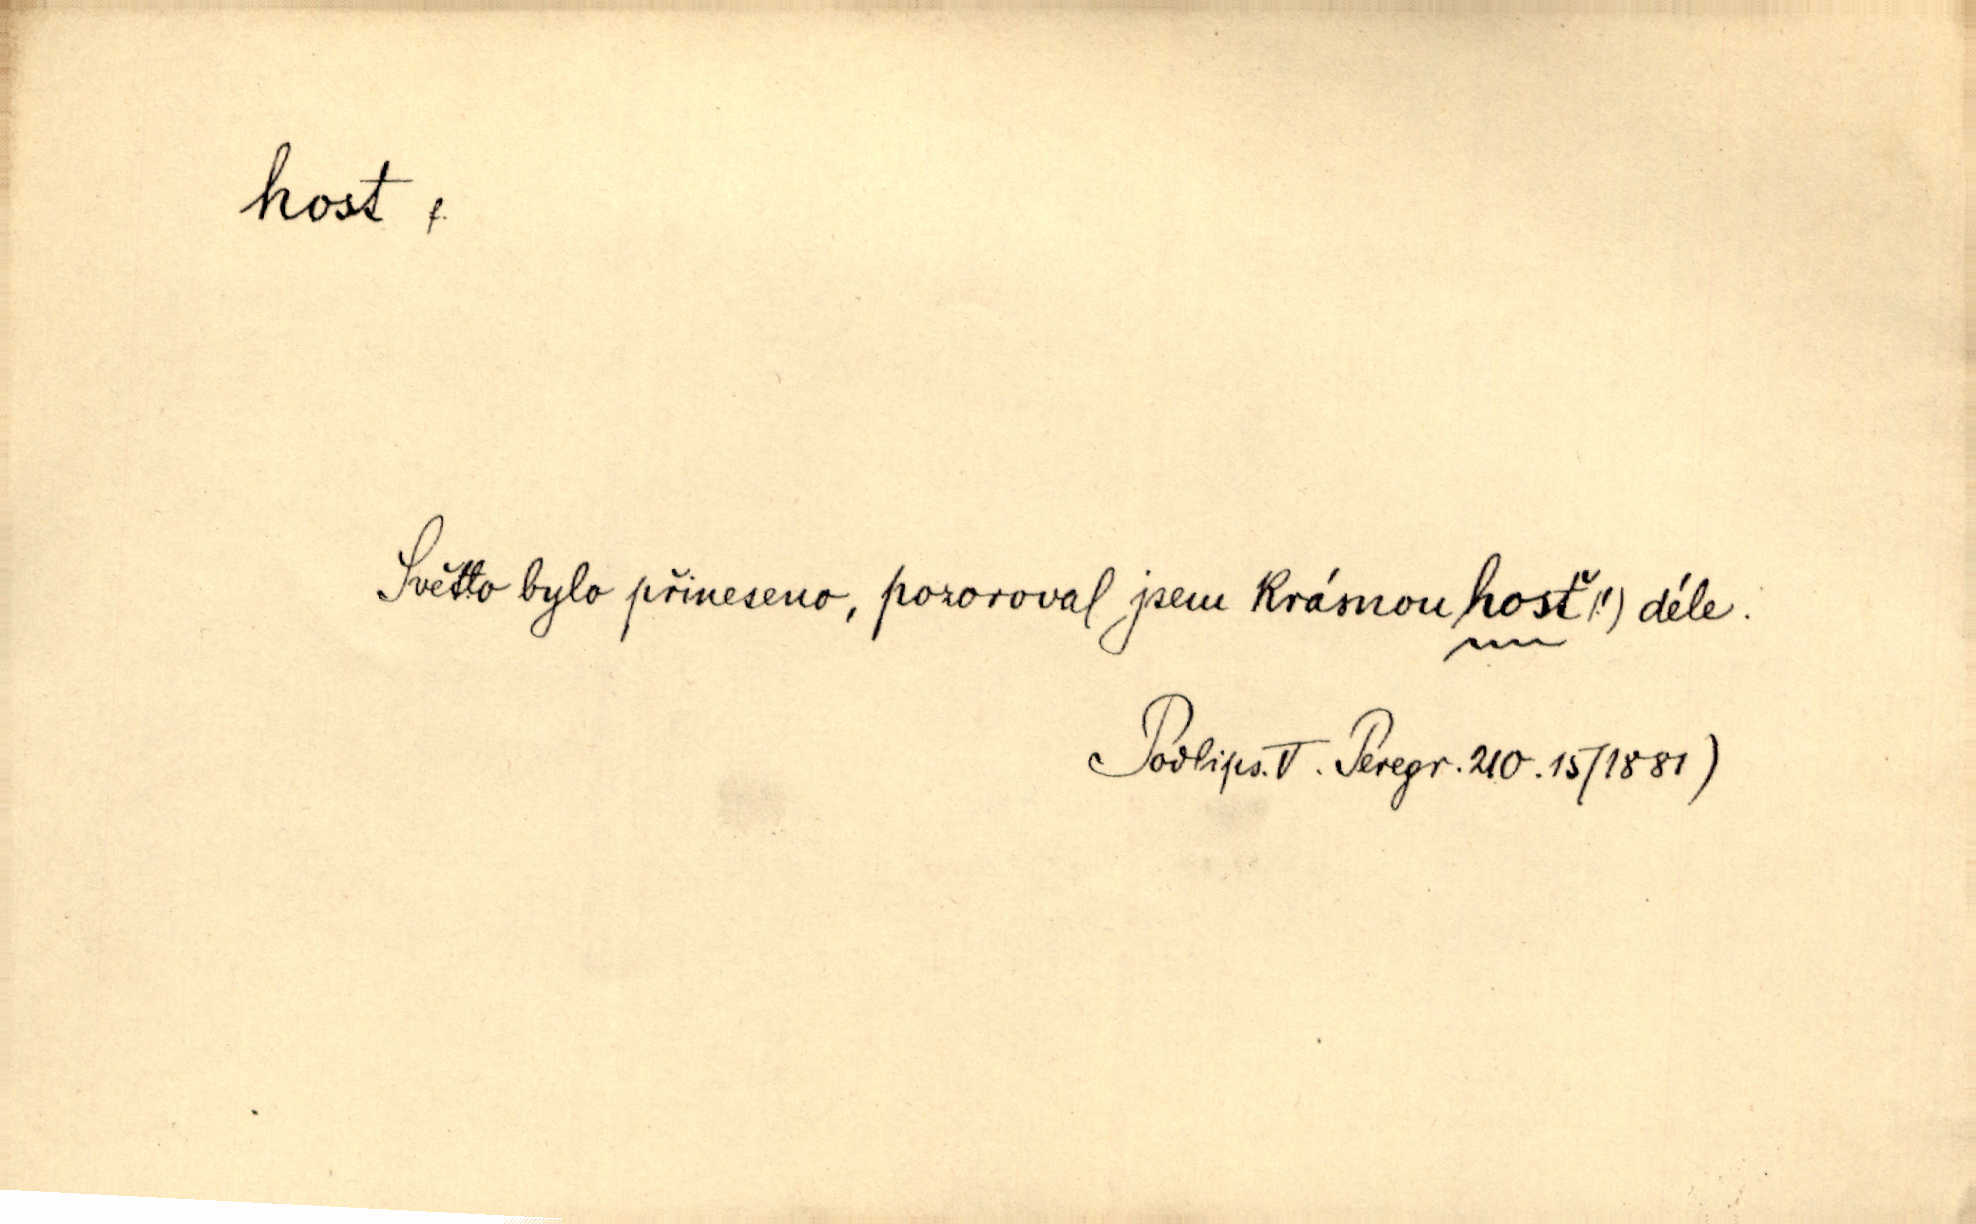 host f.
Světlo bylo přineseno, pozoroval jsem krásnou hosť (!) déle.
Podlips. V. Peregr. 210. 15 (1881)